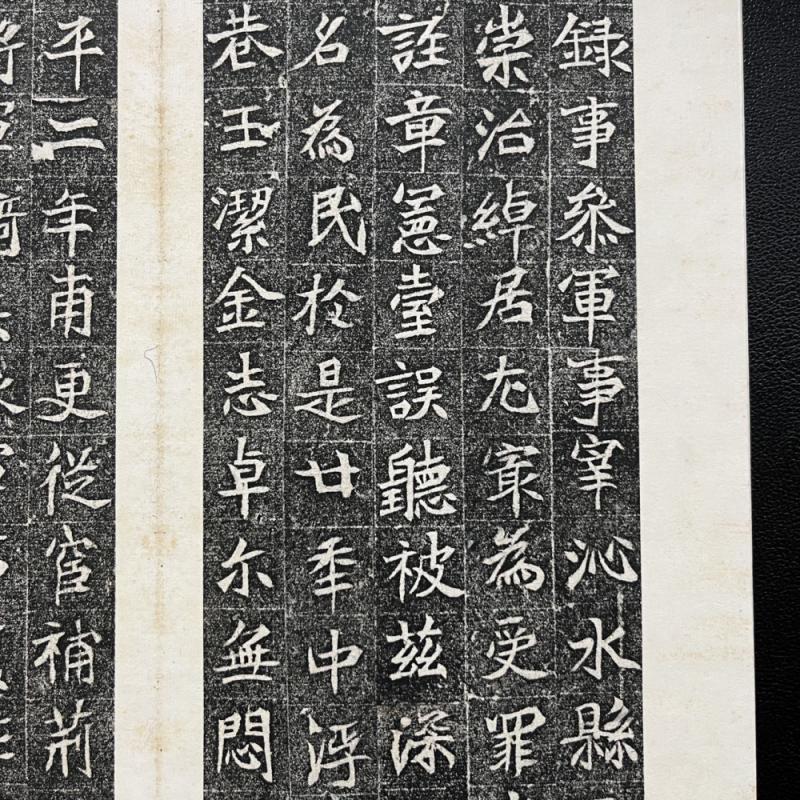 録事叅軍事宰沁水縣
崇治綽居尤冣為受罪
詿章憲臺誤聽被茲深
名為民於是廿年中浮
巷玉潔金志卓尔無悶
平二年甫更從宦補荊